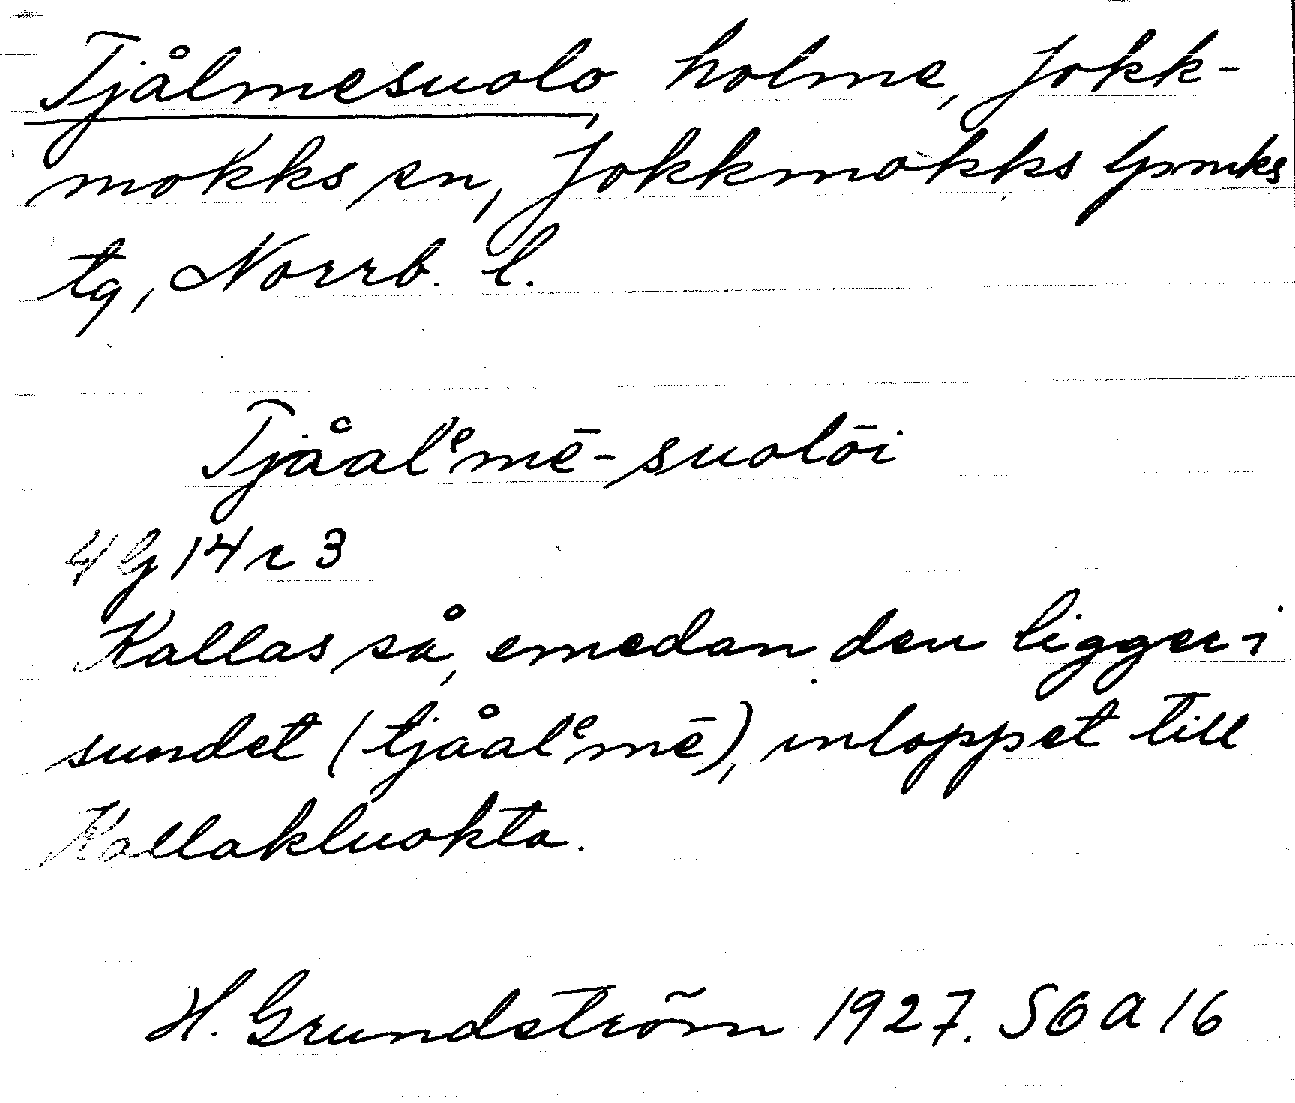 Tjålmesuolo, holme, Jokk-
mokks sn, Jokkmokks lpmks
tg, Norrb. l.
Tjåalᵉmē-suolōi
4 g 14 r 3
Kallas så, emedan den ligger i
sundet (tjåalᵉmē), inloppet till
Kallakluokta.
H. Grundström 1927. SOA 16